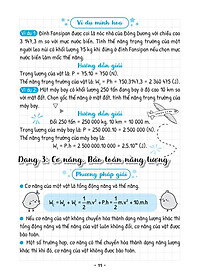 Ví dụ minh họa
Ví dụ 1 Đỉnh Fansipan được coi là nóc nhà của Đông Dương với chiều cao
3 147,3 m so với mực nước biển. Tính thế năng trọng trường của một
người leo núi có khối lượng 75 kg khi đứng ở đỉnh Fansipan nếu chọn mực
nước biển làm mốc thế năng.
Hướng dẫn giải
Trọng lượng của vật là: P = 75.10 = 750 (N).
Thế năng trọng trường của vật là: Wt = P.h = 750.3147,3 = 2 360 475 (J).
Ví dụ 2 Một máy bay có khối lượng 250 tấn đang bay ở độ cao 10 km so
với mặt đất. Chọn gốc thế năng ở mặt đất, tính thế năng trọng trường của
máy bay.
Hướng dẫn giải
Đổi 250 tấn = 250 000 kg, 10 km = 10 000 m.
Trọng lượng của máy bay là: P = 250 000.10 = 2 500 000 (N).
Thế năng trọng trường của máy bay là:
Wt = P.h = 2 500 000.10 000 = 2,5.10¹⁰ (J).
Dạng 3: Cơ năng. Bảo toàn năng lượng
Phương pháp giải
• Cơ năng của một vật là tổng động năng và thế năng.
W = Wđ + Wt = 1/2 m.v² + P.h = 1/2 m.v² + 10.m.h
• Nếu cơ năng của vật không chuyển hóa thành dạng năng lượng khác thì
tổng động năng và thế năng của vật luôn không đổi, cơ năng của vật được
bảo toàn.
• Một số trường hợp, cơ năng có thể chuyển hóa thành dạng năng lượng
khác thì khi đó, cơ năng của vật không được bảo toàn.
- 11 -